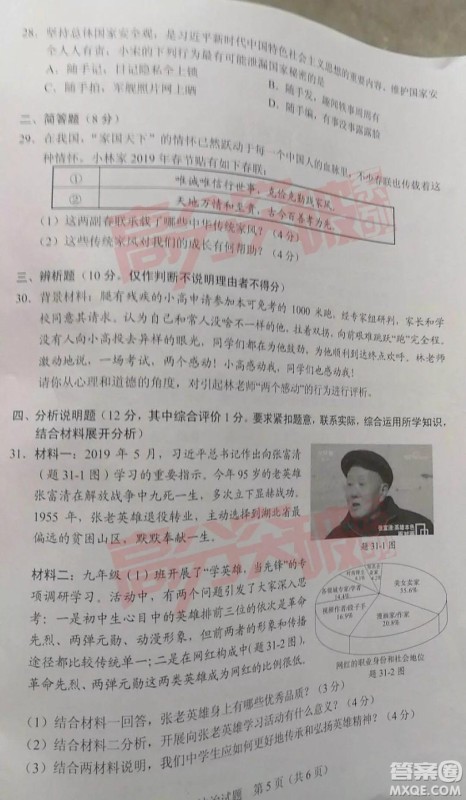 28. 坚持总体国家安全观，是习近平新时代中国特色社会主义思想的重要内容。维护国家安全人人有责，小宋的下列行为最有可能泄漏国家秘密的是
A、随手记，日记日志
B、随手发，趣闻轶事周周有
C、随手拍，军舰照片网上晒
D、随手编，有事没事露露脸
二、简答题（8分）
29. 在我国，“家国天下”的情怀已然跃动于每一个中国人的血脉里，不少家庭也传载着
这种情怀。小林家2019年春节贴有如下春联，
① 唯诚唯信行世事，克俭克勤战家风。
② 天地万情和至贵，古今百善孝为先。
（1）这两副春联承载了哪些中华传统家风？（4分）
（2）这些传统家风对我们的成长有何帮助？（4分）
三、辨析题（10分，仅作判断不说明理由者不得分）
30. 背景材料：腿有残疾的小高申请参加本可免考的1000米跑，经专家组研判，家长和学
校同意其请求。认为自己和常人没啥不一样的他，拄着双拐，向前艰难跳跃“跑”完全程。
没有人向小高投去异样的眼光，同学们都在为他加油，和他一起顺利到达终点欢呼。林老师
激动地说，一场考试，两个感动！小高感动我，同学们也感动我！
请你从心理和道德的角度，对引起林老师“两个感动”的行为进行评析。
四、分析说明题（12分，其中综合评价1分，要求紧扣题意，联系实际，综合运用所学知识，
结合材料展开分析）
31. 材料一：2019年5月，习近平总书记作出向张富清
（题31-1图）学习的重要指示。今年95岁的老英雄
张富清在解放战争中九死一生，多次立下显赫战功。
1955年，张老英雄退役转业，主动选择到湖北省最
偏远的贫困山区，默默奉献一生。
题31-1图
材料二：九年级（1）班开展了“学英雄、当先锋”的专
题调研学习。活动中，有两个问题引发了大家深深
思考：一是初中生心目中的英雄排前三位的是革命
先烈、两弹元勋、动漫形象，但前两者的形象和传播
途径都比较单一；二是在网红构成中（题31-2图），
革命先烈、两弹元勋的比例很低。
美女主播 35.6%
漫画家/作家 20.8%
视频作者/段子手 16.9%
各领域专家/学者 14.4%
网红的职业身份和社会地位
题31-2图
（1）结合材料一回答，张老英雄身上有哪些优秀品质？（3分）
（2）结合材料二分析，开展向张老英雄学习活动有什么意义？（4分）
（3）结合两段材料说明，我们中学生应如何更好地传承和弘扬英雄精神？（4分）
治试题 第5页（共6页）
高分突破
答案圈
MXQE.COM